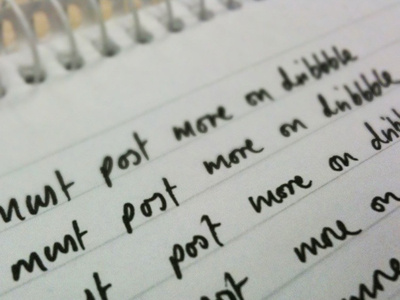 must post more on dribbble
must post more on dribbble
post more on
more on